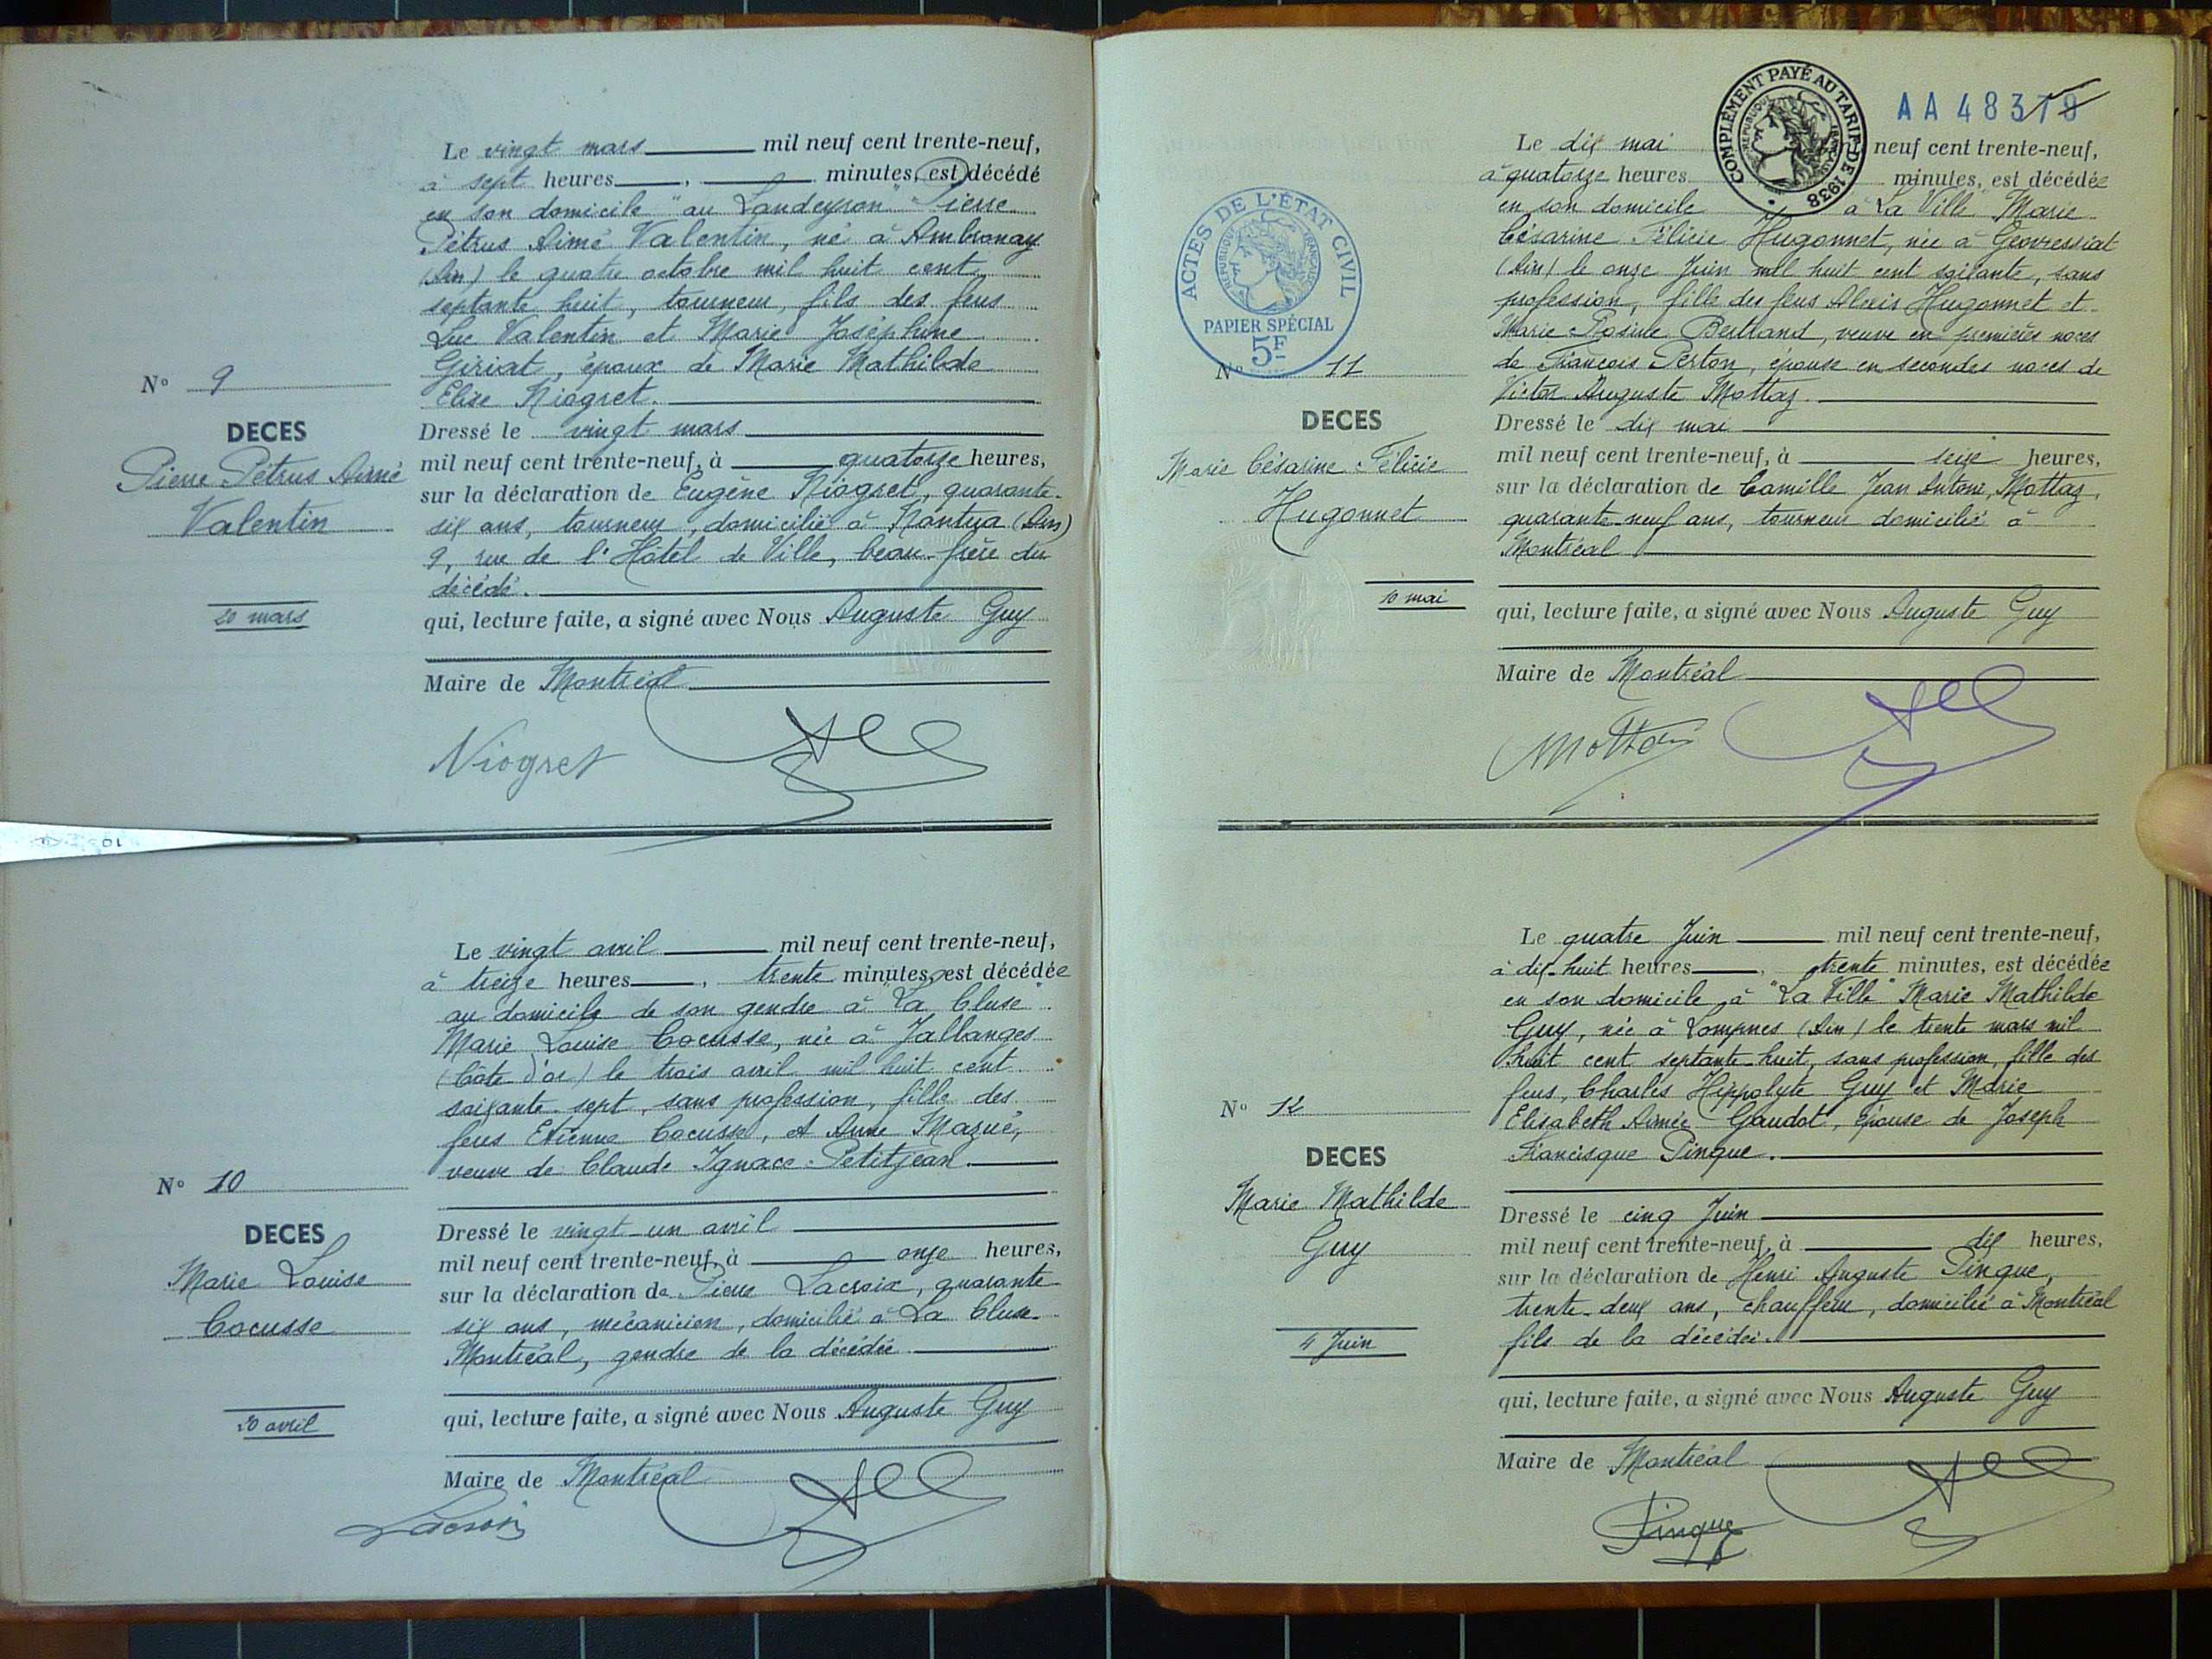 Le vingt mars mil neuf cent trente-neuf,
à sept heures, minutes, est décédé
en son domicile "au Landeyron" Pierre
Pétrus Aimé Valentin, né à Ambronay
(Ain) le quatre octobre mil huit cent
septante huit, tourneur, fils des feus
Luc Valentin et Marie Joséphine
Giriat, époux de Marie Mathilde
Elise Niogret.
N° 9
DECES
Pierre Pétrus Aimé
Valentin
20 mars
Dressé le vingt mars
mil neuf cent trente-neuf, à quatorze heures,
sur la déclaration de Eugène Niogret, quarante-
six ans, tourneur, domicilié à Nantua (Ain)
9, rue de l'Hôtel de Ville, beau-frère du
décédé.
qui, lecture faite, a signé avec Nous Auguste Guy
Maire de Montréal
Niogret
Le vingt avril mil neuf cent trente-neuf,
à treize heures, trente minutes, est décédée
au domicile de son gendre à "La Cluse"
Marie Louise Cocusse, née à Jallanges
(Côte d'or) le trois avril mil huit cent
soixante-sept, sans profession, fille des
feus Etienne Cocusse, et Anne Mazué,
veuve de Claude Ignace Petitjean.
N° 10
DECES
Marie Louise
Cocusse
20 avril
Dressé le vingt-un avril
mil neuf cent trente-neuf, à onze heures,
sur la déclaration de Pierre Lacroix, quarante
six ans, mécanicien, domicilié à La Cluse-
Montréal, gendre de la décédée
qui, lecture faite, a signé avec Nous Auguste Guy
Maire de Montréal
Lacroix
AA 48379
COMPLÉMENT PAYÉ AU TARIF DE 1938
RÉPUBLIQUE FRANÇAISE
Le dix mai neuf cent trente-neuf,
à quatorze heures minutes, est décédée
en son domicile à La Ville Marie
Césarine Félicie Hugonnet, née à Geovressiat
(Ain) le onze Juin mil huit cent soixante, sans
profession, fille des feus Alexis Hugonnet et
Marie Rosine Bertrand, veuve en premières noces
de François Perton, épouse en secondes noces de
Victor Auguste Mottaz.
ACTES DE L'ÉTAT CIVIL
RÉPUBLIQUE FRANÇAISE
PAPIER SPÉCIAL
5F
N° 11
DECES
Marie Césarine Félicie
Hugonnet
10 mai
Dressé le dix mai
mil neuf cent trente-neuf, à seize heures,
sur la déclaration de Camille Jean Antoine Mottaz,
quarante-neuf ans, tourneur domicilié à
Montréal
qui, lecture faite, a signé avec Nous Auguste Guy
Maire de Montréal
Mottaz
Le quatre Juin mil neuf cent trente-neuf,
à dix-huit heures, trente minutes, est décédée
en son domicile, à "La Ville" Marie Mathilde
Guy, née à Lompnes (Ain) le trente mars mil
huit cent septante-huit, sans profession, fille des
feus, Charles Hippolyte Guy et Marie
Elisabeth Aimée Gaudot, épouse de Joseph
Francisque Pinque.
N° 12
DECES
Marie Mathilde
Guy
4 Juin
Dressé le cinq Juin
mil neuf cent trente-neuf, à dix heures,
sur la déclaration de Henri Auguste Pinque,
trente-deux ans, chauffeur, domicilié à Montréal
fils de la décédée.
qui, lecture faite, a signé avec Nous Auguste Guy
Maire de Montréal
Pinque